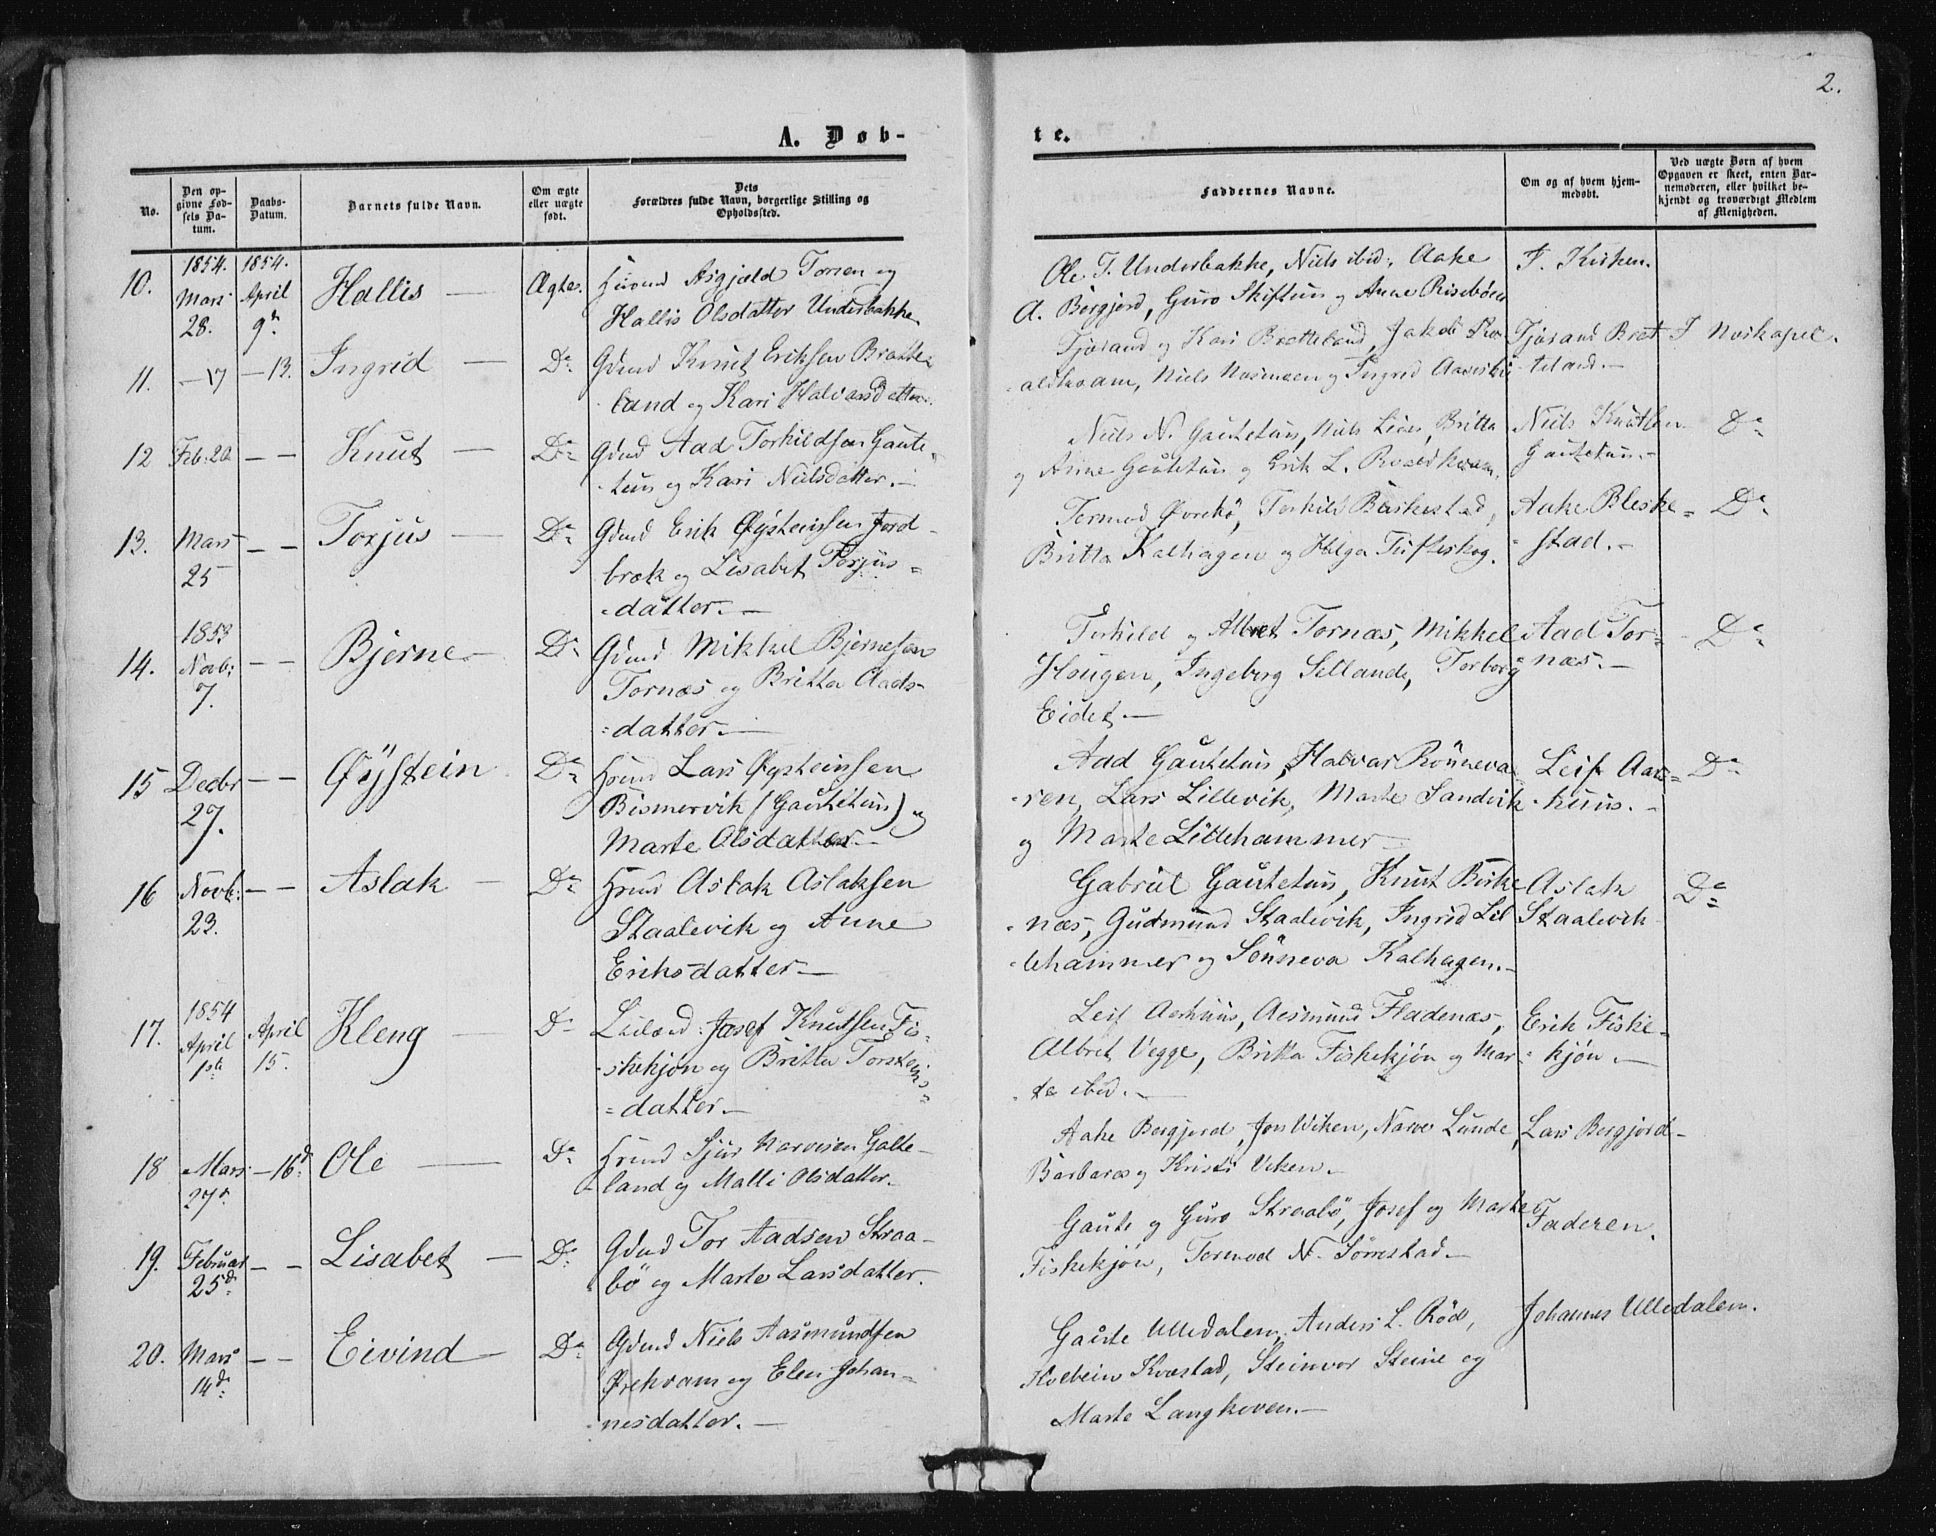 2.
A. Døb-
te.
No.
Den opgivne Fødsels Datum.
Daabs-Datum.
Barnets fulde Navn.
Om ægte eller uægte født.
Dets Forældres fulde Navn, borgerlige Stilling og Opholdssted.
Faddernes Navne.
Om og af hvem hjemmedøbt.
Ved uægte Børn af hvem Opgaven er skeet, enten Barnemoderen, eller hvilket bekjendt og troværdigt Medlem af Menigheden.
10. 1854. Mars 28. 1854. April 9de Hallis — Ægte.
Asgjæld Torsen og
Hallis Olsdatter Underbakke
Ole T. Underbakke, Niels ibid., Aake
A. Bergjord, Guro Skiftun og Anne Risebøen
I. Kirken.
11. — 17 — 13. Ingrid — Do
Gdmd Knut Eriksen Bratte-
land og Kari Halvarsdatter.
Tjøsand og Kari Bratteland, Jakob Ro-
aldkvam, Niels Nasmoen og Ingrid
Tjøsand Brat-
teland.—
I Norkapel.
12 Feb. 20 — — Knut — Do
Gdmd Aad Torkildsen Gaute-
tun og Kari Nielsdatter.—
Niels N. Gautetun, Niels Lien, Britta
og Anne Gautetun og Erik L. Roaldkvam.
Niels Knutsen
Gautetun.—
Do
13. Mars 25 — — Torjus — Do
Gdmd Erik Øysteinsen Jord-
bræk og Lisabet Torjus=
=datter.—
Tormod Øvrebø, Torkild Bleskestad,
Britta Kalhagen og Helga Tufteskog.
Aake Bleske=
=stad.—
Do
14. 1853 Novb: 7. — — Bjerne — Do
Gdmd Mikkel Bjernesen
Tornæs og Britta Aads-
=datter.—
Torkild og Albret Tornæs, Mikkel
Hougen, Ingeborg Selland, Torborg
Eidet.—
Aad Tor=
næs.—
Do
15 Decbr 27. — — Øystein Do
Hmd Lars Øysteinsen
Bismervik (Gautetun) og
Marte Olsdatter.—
Aad Gautetun, Halvar Rönneva-
ren, Lars Lillevik, Marte Sandvik
og Marte Lillehammer—
Leif Aar=
=huus.—
Do
16 Novb: 23. — — Aslak — Do
Hmd Aslak Aslaksen
Staalevik og Anne
Eriksdatter—
Gabriel Gautetun, Knut Birke-
næs, Gudmund Staalevik, Ingrid Lil-
lehammer og Sönneva Kalhagen.—
Aslak
Staalevik
Do
17. 1854 April 1ste April 15. Kleng — Do
Leilænd: Josef Knutsen Fi-
skekjøn og Britta Torsteins=
=datter.—
Leif Aarhuus, Aasmund Fladenæs,
Albret Vegge, Britta Fiskekjøn og Mar-
te ibid.—
Erik Fiske=
=kjøn.—
18 Mars 27de — 16de Ole — Do
Hmd Sjur Narvesen Galte-
land og Malli Olsdatter.
Aake Bergjord, Jon Viken, Narve Lunde,
Barbara og Kristi Viken.—
Lars Bergjord—
19. Februar 25de — — Lisabet — Do
Gdmd Tor Aadsen Straa-
bö og Marte Larsdatter.
Gaute og Guro Straabö, Josef og Marte
Fiskekjön, Tormod N. Sörrestad.—
Faderen.
20. Mars 14de — — Eivind — Do
Gdmd Niels Aasmundsen
Ørekvam og Elen Johan-
nesdatter.—
Gaute Ulledalen, Anders L. Röd,
Kvæstad, Steinvor Steine og
Marte Langhoven.—
Johannes Ulledalen.